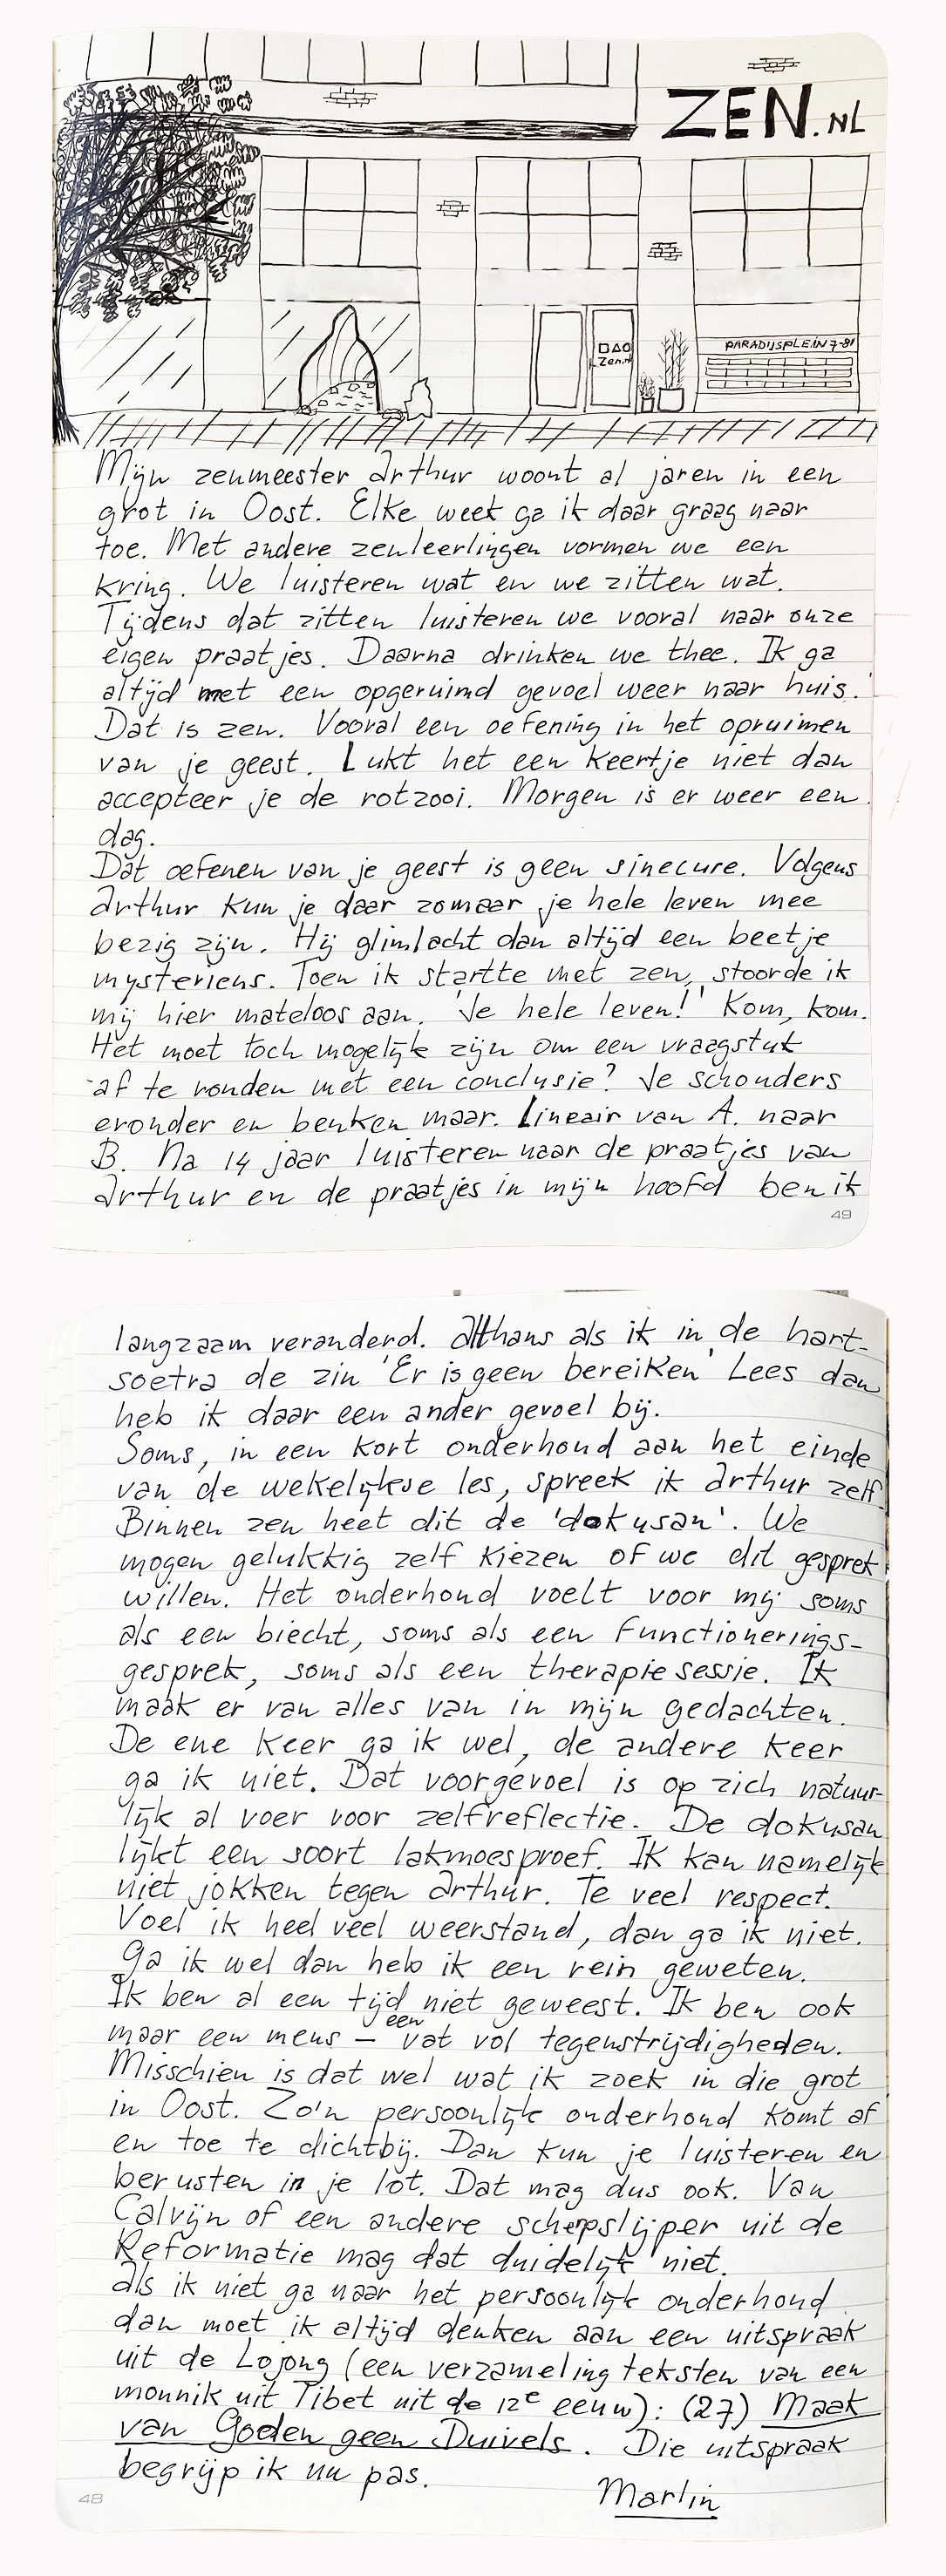 ZEN.NL
PARADIJSPLEIN 7-81
□△○
Zen.nl
Mijn zenmeester Arthur woont al jaren in een
grot in Oost. Elke week ga ik daar graag naar
toe. Met andere zenleerlingen vormen we een
kring. We luisteren wat en we zitten wat.
Tijdens dat zitten luisteren we vooral naar onze
eigen praatjes. Daarna drinken we thee. Ik ga
altijd met een opgeruimd gevoel weer naar huis.
Dat is zen. Vooral een oefening in het opruimen
van je geest. Lukt het een keertje niet dan
accepteer je de rotzooi. Morgen is er weer een
dag.
Dat oefenen van je geest is geen sinecure. Volgens
Arthur kun je daar zomaar je hele leven mee
bezig zijn. Hij glimlacht dan altijd een beetje
mysterieus. Toen ik startte met zen, stoorde ik
mij hier mateloos aan. 'Je hele leven!' Kom, kom.
Het moet toch mogelijk zijn om een vraagstuk
af te ronden met een conclusie? Je schouders
eronder en beuken maar. Lineair van A. naar
B. Na 14 jaar luisteren naar de praatjes van
Arthur en de praatjes in mijn hoofd ben ik
49
langzaam veranderd. Althans als ik in de hart-
soetra de zin 'Er is geen bereiken' Lees dan
heb ik daar een ander gevoel bij.
Soms, in een kort onderhoud aan het einde
van de wekelijkse les, spreek ik Arthur zelf.
Binnen zen heet dit de 'dokusan'. We
mogen gelukkig zelf kiezen of we dit gesprek
willen. Het onderhoud voelt voor mij soms
als een biecht, soms als een functionerings-
gesprek, soms als een therapie sessie. Ik
maak er van alles van in mijn gedachten.
De ene keer ga ik wel, de andere keer
ga ik niet. Dat voorgevoel is op zich natuur-
lijk al voer voor zelfreflectie. De dokusan
lijkt een soort lakmoesproef. Ik kan namelijk
niet jokken tegen Arthur. Te veel respect.
Voel ik heel veel weerstand, dan ga ik niet.
Ga ik wel dan heb ik een rein geweten.
Ik ben al een tijd niet geweest. Ik ben ook
maar een mens – een vat vol tegenstrijdigheden.
Misschien is dat wel wat ik zoek in die grot
in Oost. Zo'n persoonlijk onderhoud komt af
en toe te dichtbij. Dan kun je luisteren en
berusten in je lot. Dat mag dus ook. Van
Calvijn of een andere scherpslijper uit de
Reformatie mag dat duidelijk niet.
Als ik niet ga naar het persoonlijk onderhoud
dan moet ik altijd denken aan een uitspraak
uit de Lojong (een verzameling teksten van een
monnik uit Tibet uit de 12e eeuw): (27) Maak
van Goden geen Duivels. Die uitspraak
begrijp ik nu pas.
Marlin
48